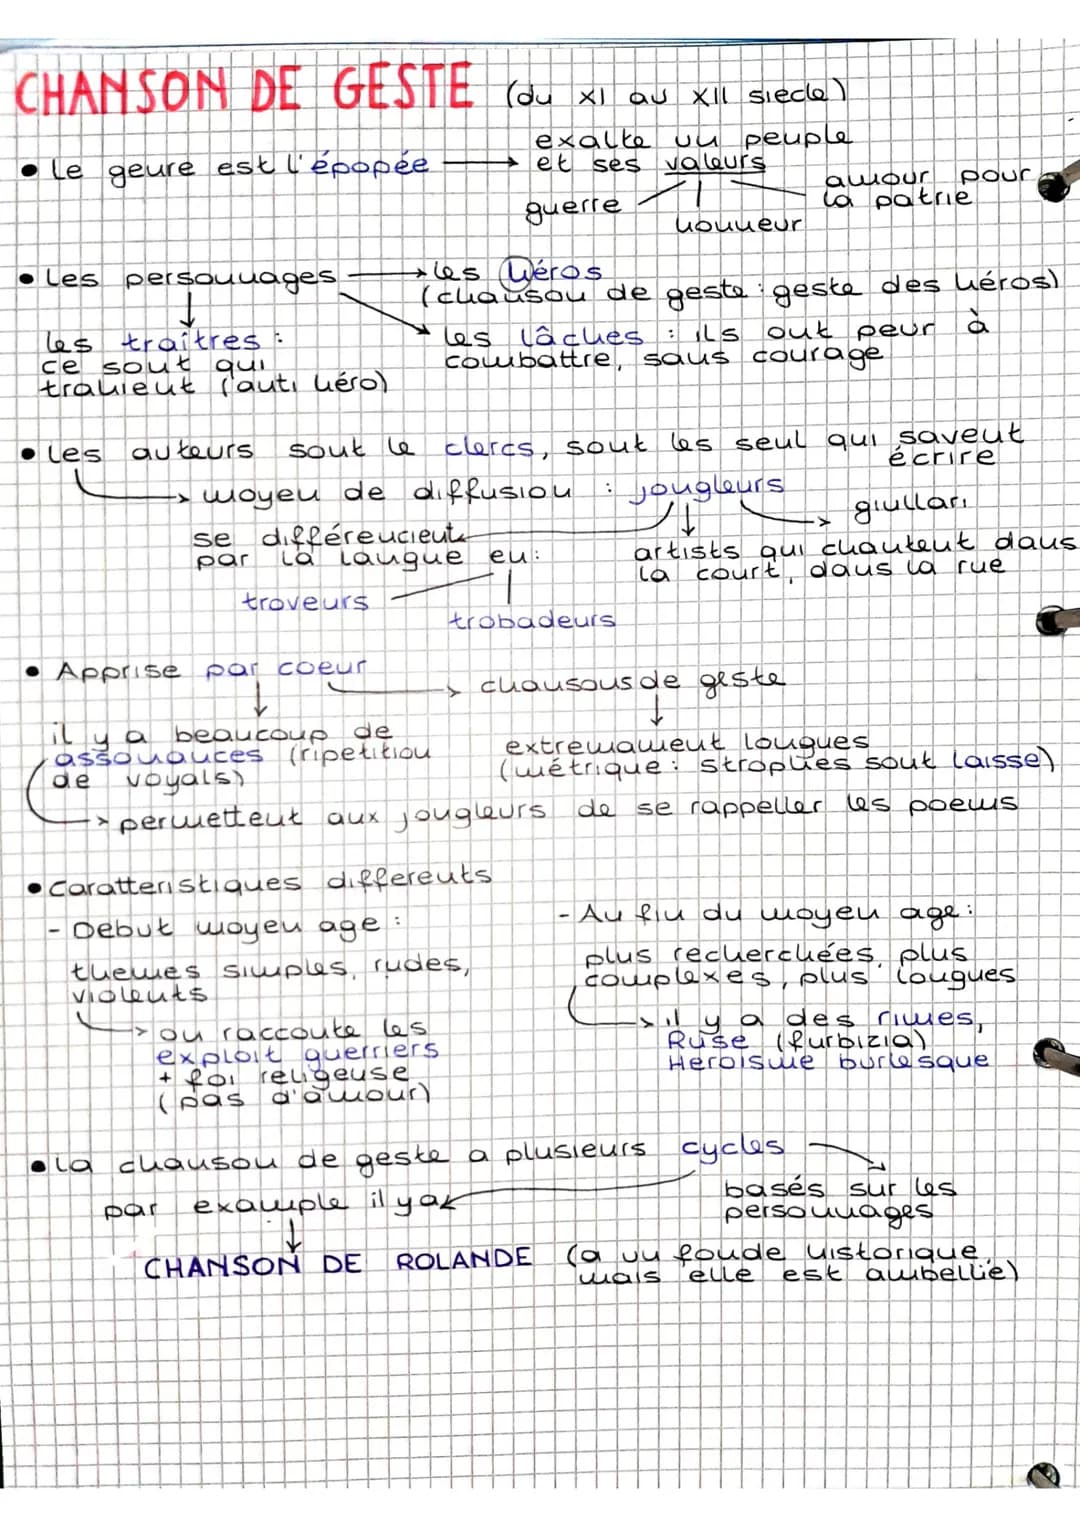 CHANSON DE GESTE (du XI au XII siecle)
exalte un peuple
• Le genre est l'épopée → et ses valeurs
amour pour
la patrie
guerre
honneur
• Les personnages → les héros
(chanson de geste : geste des héros)
les traîtres :
ce sont qui
trahient (anti héro)
les lâches : ils ont peur à
combattre, sans courage
• Les auteurs sont le clercs, sont les seul qui savent
écrire
→ moyen de diffusion : jougleurs
→ giullari
se différencient
par la langue en:
artists qui chantent dans
la court, dans la rue
troveurs
trobadeurs
• Apprise par coeur
→ chansons de geste
il y a beaucoup de
assonances (ripetition
de voyals)
extremament longues
(métrique: strophes sont laisse)
→ permettent aux jougleurs de se rappeller les poems
• Caratteristiques differents
- Debut moyen age :
themes simples, rudes,
violents
→ on raccoute les
exploit guerriers
+ foi religeuse
(pas d'amour)
- Au fin du moyen age:
plus recherchées, plus
complexes, plus longues
→ il y a des rimes,
Ruse (furbizia)
Heroisme burlesque
• La chanson de geste a plusieurs cycles
basés sur les
personnages
par example il ya
CHANSON DE ROLANDE (a un fonde historique,
mais elle est ambellie)